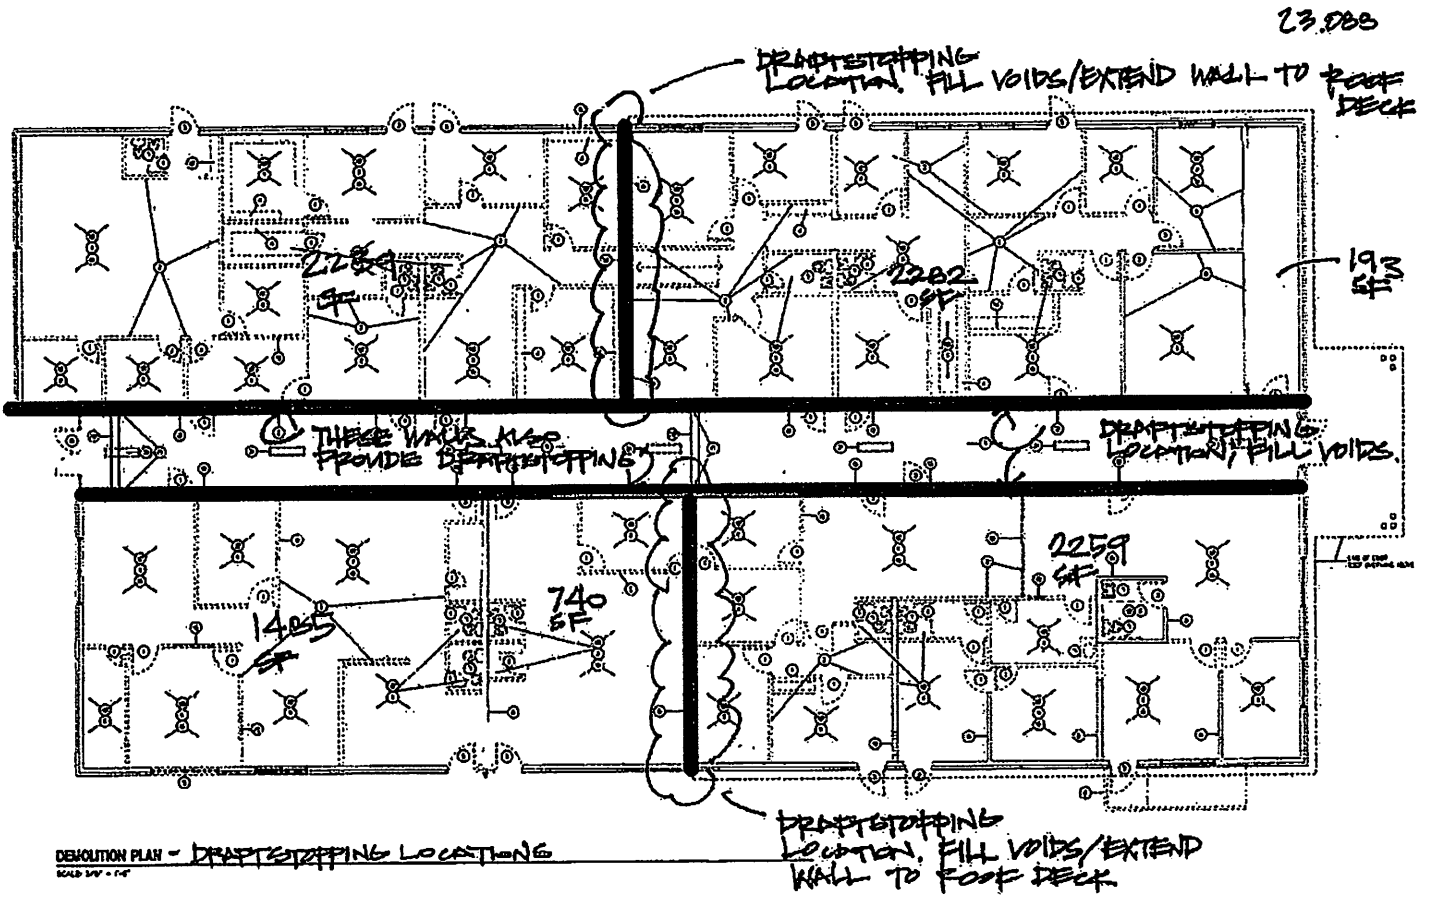 23.088
DRAFTSTOPPING
LOCATION. FILL VOIDS/EXTEND WALL TO ROOF
DECK
193
SF
SF
2282
SF
THESE WALLS ALSO
PROVIDE DRAFTSTOPPING
DRAFTSTOPPING
LOCATION, FILL VOIDS.
2259
SF
740
SF
1485
SF
DRAFTSTOPPING
LOCATION. FILL VOIDS/EXTEND
WALL TO ROOF DECK
DEMOLITION PLAN - DRAFTSTOPPING LOCATIONS